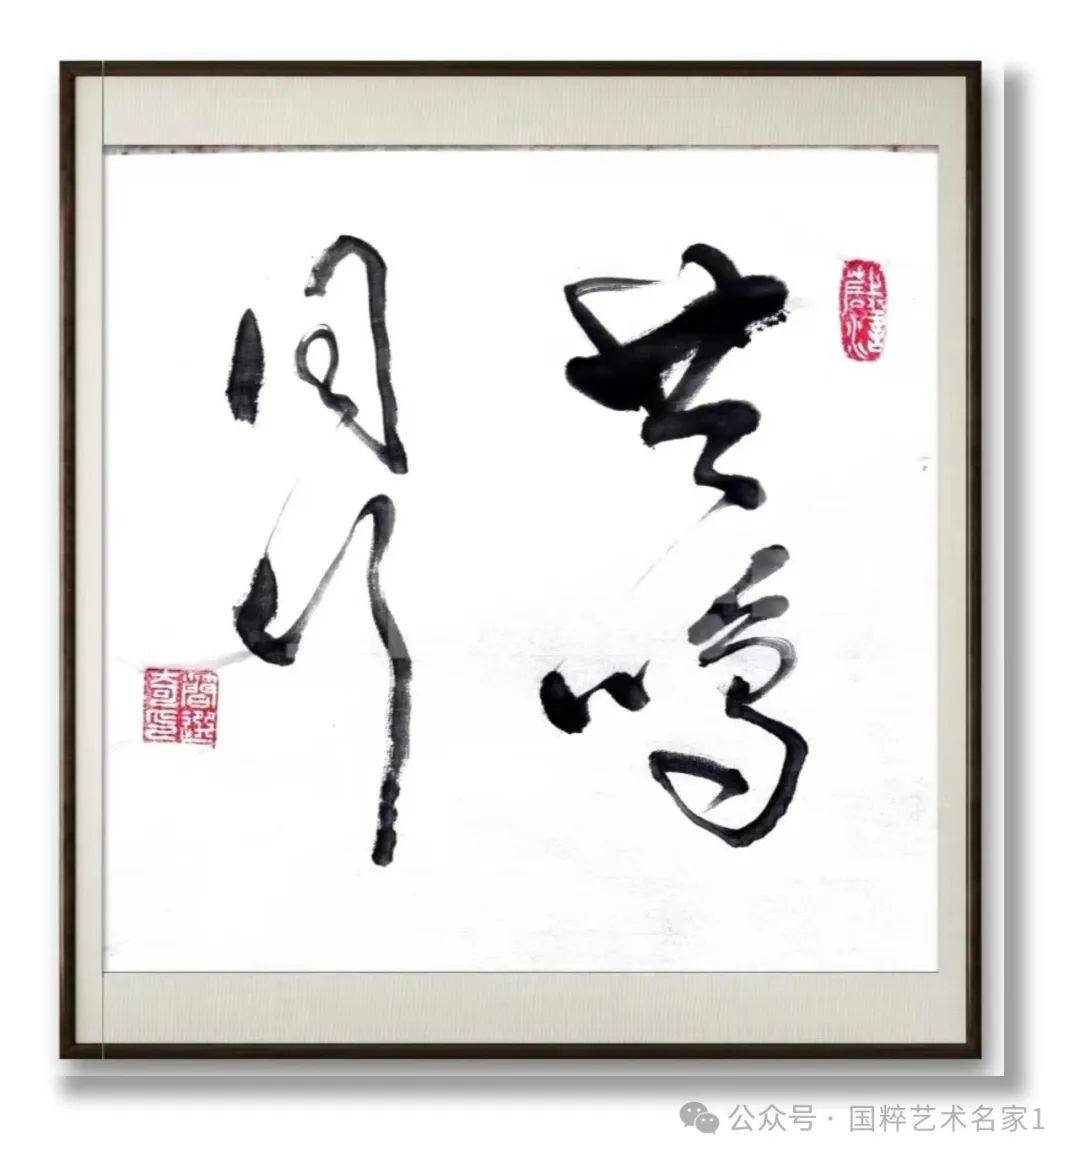 共鸣
同行
公众号 · 国粹艺术名家1